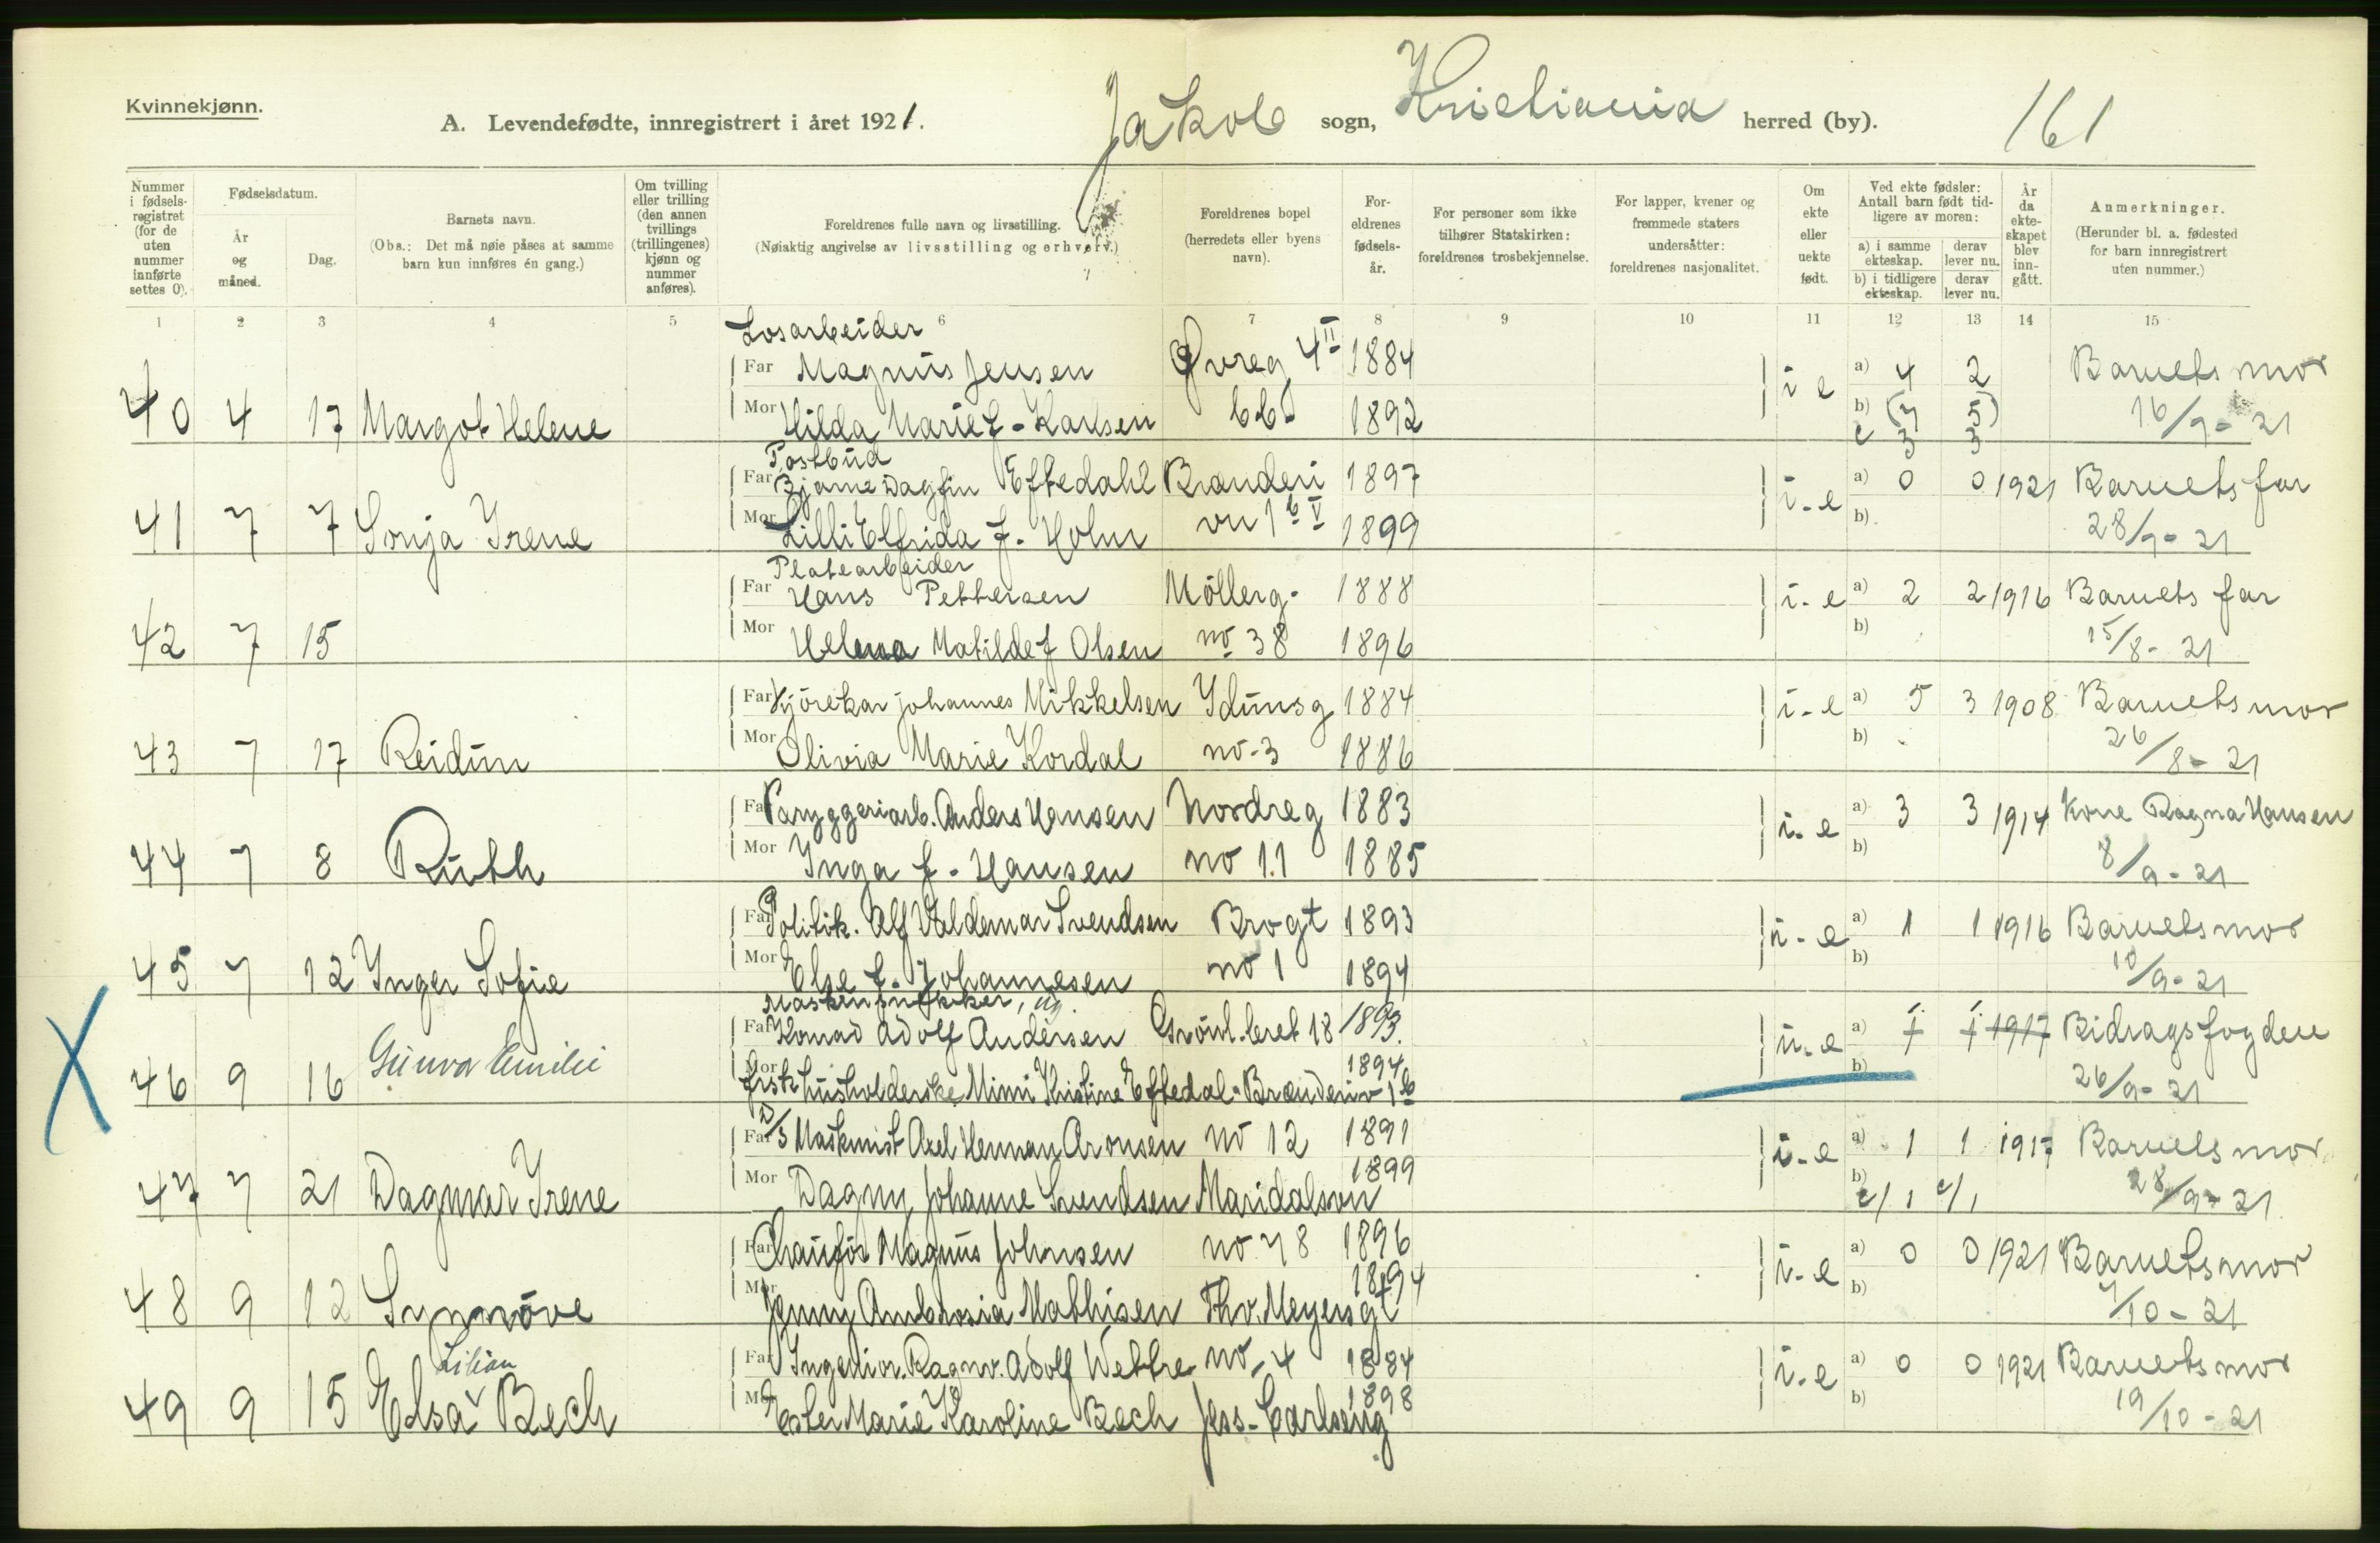 Kvinnekjønn.
A. Levendefødte, innregistrert i året 1921. Jakob sogn, Kristiania herred (by). 161
Nummer i fødselsregistret (for de uten nummer innførte settes 0).
Fødselsdatum.
År og måned.
Dag.
Barnets navn.
(Obs.: Det må nøie påses at samme barn kun innføres én gang.)
Om tvilling eller trilling (den annen tvillings (trillingenes) kjønn og nummer anføres).
Foreldrenes fulle navn og livsstilling.
(Nøiaktig angivelse av livsstilling og erhverv.)
Foreldrenes bopel (herredets eller byens navn).
Foreldrenes fødselsår.
For personer som ikke tilhører Statskirken: foreldrenes trosbekjennelse.
For lapper, kvener og fremmede staters undersåtter: foreldrenes nasjonalitet.
Om ekte eller uekte født.
Ved ekte fødsler: Antall barn født tidligere av moren:
a) i samme ekteskap. derav lever nu.
b) i tidligere ekteskap. derav lever nu.
År da ekteskapet blev inngått.
Anmerkninger.
(Herunder bl. a. fødested for barn innregistrert uten nummer.)
1 2 3 4 5 6 7 8 9 10 11 12 13 14 15
Losarbeider
Far Magnus Jensen Øvreg 4 II 1884 i e a) 4 2 Barnets mor
40 4 17 Margot Helene Mor Hilda Marie f. Karlsen 1892 b) (7 5) 16/9-21
c 3 3
Postbud
Far Bjarne Dagfin Eftedahl Branderi 1897 i-e a) 0 0 1921 Barnets far
41 7 7 Sonja Irene Mor Lilli Elfrida f. Holm vn 1 b V 1899 b) 28/9-21
Platearbeider
Far Hans Pettersen Möllerg- 1888 i-e a) 2 2 1916 Barnets far
42 7 15 Mor Helena Matilde f Olsen no 38 1896 b) 15/8-21
Far Kjörekar Johannes Mikkelsen Idunsg 1884 i-e a) 5 3 1908 Barnets mor
43 7 17 Reidun Mor Olivia Marie Kordal no-3 1886 b) 26/8-21
Far Anders Hansen Nordreg 1883 i-e a) 3 3 1914 Kone Ragna Hansen
44 7 8 Ruth Mor Inga f. Hansen no 11 1885 b) 8/9-21
Far Politik. Alf Valdemar Svendsen Brogt 1893 i-e a) 1 1 1916 Barnets mor
45 7 12 Inger Sofie Mor Else f. Johannesen no 1 1894 b) 10/9-21
Far Konrad Adolf Andersen Grönl.leret 18 1893. u-e a) 1 1 1917 Bidragsfogden
46 9 16 Gunvor Emilie Mor husholderske Mimi Kristine Eftedal- Branderiv 1 b 1894 b) 26/9-21
Far Maskinist Axel Herman Aronsen no 12 1891 i-e a) 1 1 1917 Barnets mor
47 7 21 Dagmar Irene Mor Dagny Johanne Svendsen Maridalsvn 1899 b) c/1 c/1 28/9-21
Far Chauför Magnus Johnsen no 78 1896 i-e a) 0 0 1921 Barnets mor
48 9 12 Synnöve Mor Jenny Ambrosia Mathisen Thv. Meyersgt 1894 b) 7/10-21
Lilian
Far Ingeniör Ragnv. Adolf Wettre no-4 1884 i-e a) 0 0 1921 Barnets mor
49 9 15 Elsa Bech Mor Ester Marie Karoline Bech Jess-Carlseng 1898 b) 19/10-21